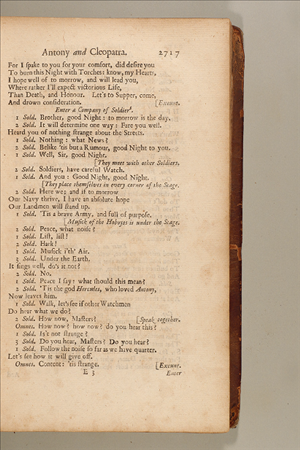 Antony and Cleopatra. 2717
For I spake to you for your comfort, did desire you
To burn this Night with Torches: know, my Hearts,
I hope well of to morrow, and will lead you,
Where rather I'll expect victorious Life,
Than Death, and Honour. Let's to Supper, come,
And drown consideration. [Exeunt.
Enter a Company of Soldiers.
1 Sold. Brother, good Night: to morrow is the day.
2 Sold. It will determine one way: Fare you well.
Heard you of nothing strange about the Streets.
1 Sold. Nothing: what News?
2 Sold. Belike 'tis but a Rumour, good Night to you.
1 Sold. Well, Sir, good Night.
[They meet with other Soldiers.
2 Sold. Soldiers, have careful Watch.
1 Sold. And you: Good Night, good Night.
[They place themselves in every corner of the Stage.
2 Sold. Here we; and if to morrow
Our Navy thrive, I have an absolute hope
Our Landmen will stand up.
1 Sold. 'Tis a brave Army, and full of purpose.
[Musick of the Hoboys is under the Stage.
2 Sold. Peace, what noise?
1 Sold. List, list!
2 Sold. Hark!
1 Sold. Musick i'th' Air.
3 Sold. Under the Earth.
It signs well, do's it not?
2 Sold. No.
1 Sold. Peace I say: what should this mean?
2 Sold. 'Tis the god Hercules, who loved Antony,
Now leaves him.
1 Sold. Walk, let's see if other Watchmen
Do hear what we do?
2 Sold. How now, Masters? [Speak together.
Omnes. How now? how now? do you hear this?
1 Sold. Is't not strange?
3 Sold. Do you hear, Masters? Do you hear?
1 Sold. Follow the noise so far as we have quarter.
Let's see how it will give off.
Omnes. Content: 'tis strange. [Exeunt.
E 3 Enter